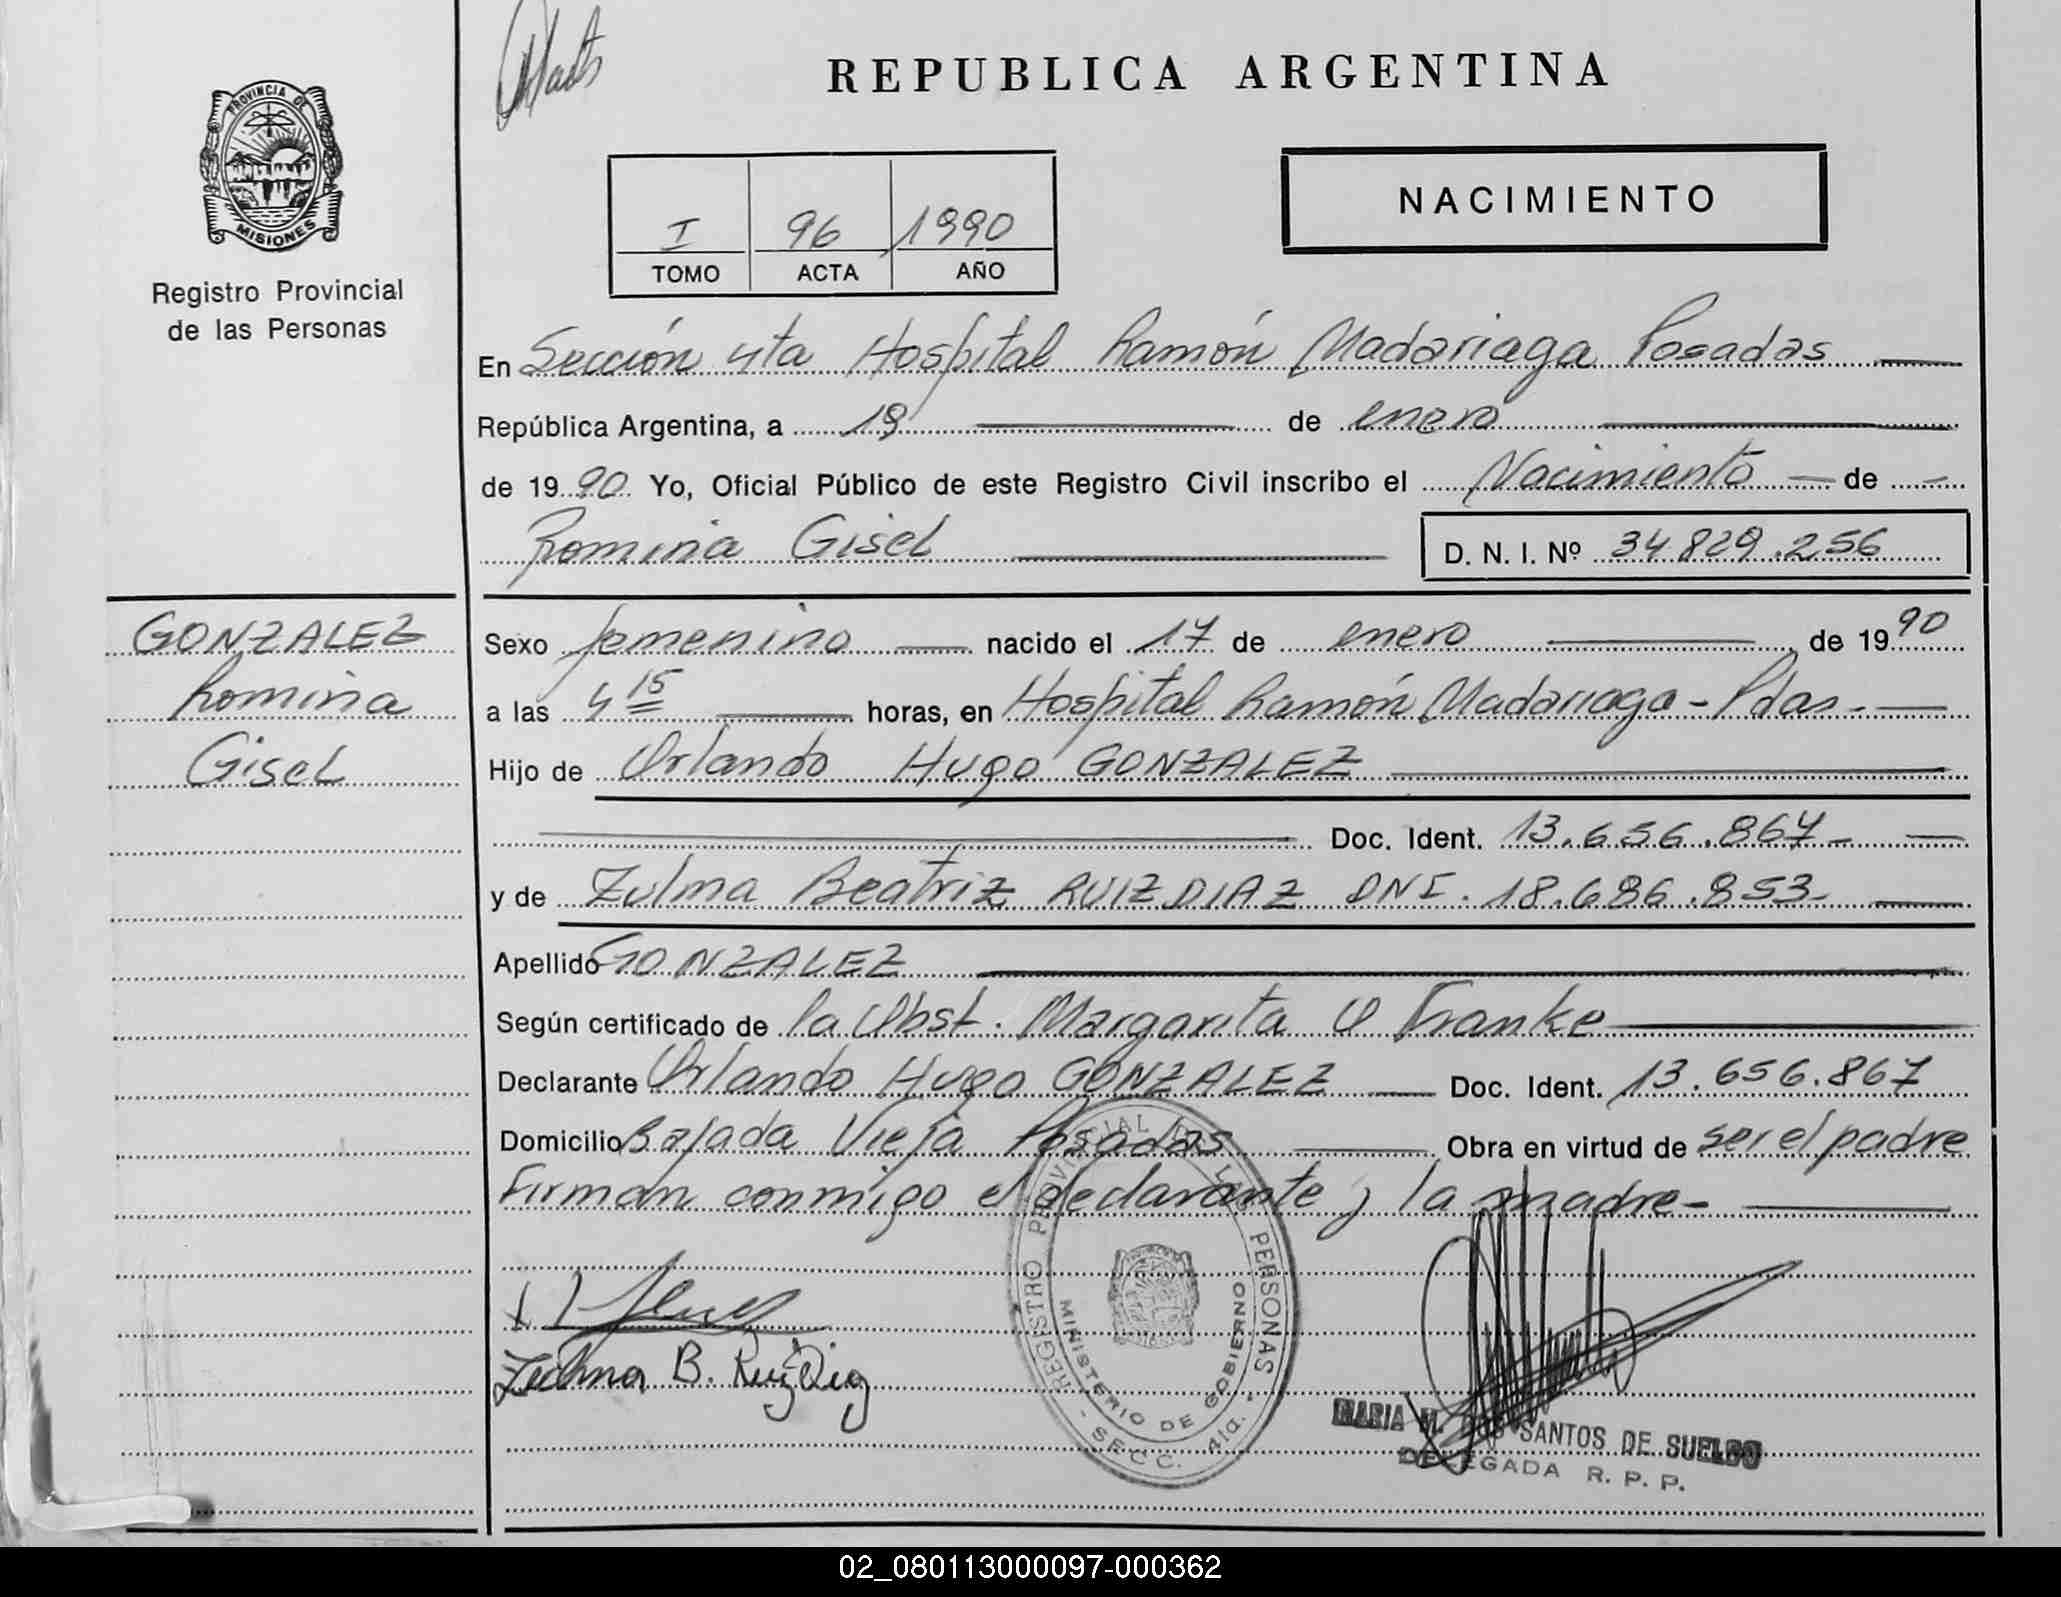 REPUBLICA ARGENTINA
PROVINCIA DE
MISIONES
Registro Provincial
de las Personas
NACIMIENTO
I 96 1990
TOMO ACTA AÑO
En Sección 4ta Hospital Ramón Madariaga Posadas
República Argentina, a 19 de enero
de 1990 Yo, Oficial Público de este Registro Civil inscribo el Nacimiento de
Romina Gisel D. N. I. Nº 34.829.256
GONZALEZ
Romina
Gisel
Sexo femenino nacido el 17 de enero de 1990
a las 4 15 horas, en Hospital Ramón Madariaga - Pdas.
Hijo de Orlando Hugo GONZALEZ
Doc. Ident. 13.656.867
y de Zulma Beatriz RUIZ DIAZ DNI. 18.686.853
Apellido GONZALEZ
Según certificado de la Obst. Margarita O Franke
Declarante Orlando Hugo GONZALEZ Doc. Ident. 13.656.867
Domicilio Bajada Vieja Posadas Obra en virtud de ser el padre
Firman conmigo el declarante y la madre
REGISTRO PROVINCIAL DE LAS PERSONAS
MINISTERIO DE GOBIERNO
- SECC. 4ta. -
Zulma B. Ruiz Diaz
MARIA M. DOS SANTOS DE SUELDO
DELEGADA R. P. P.
02_080113000097-000362